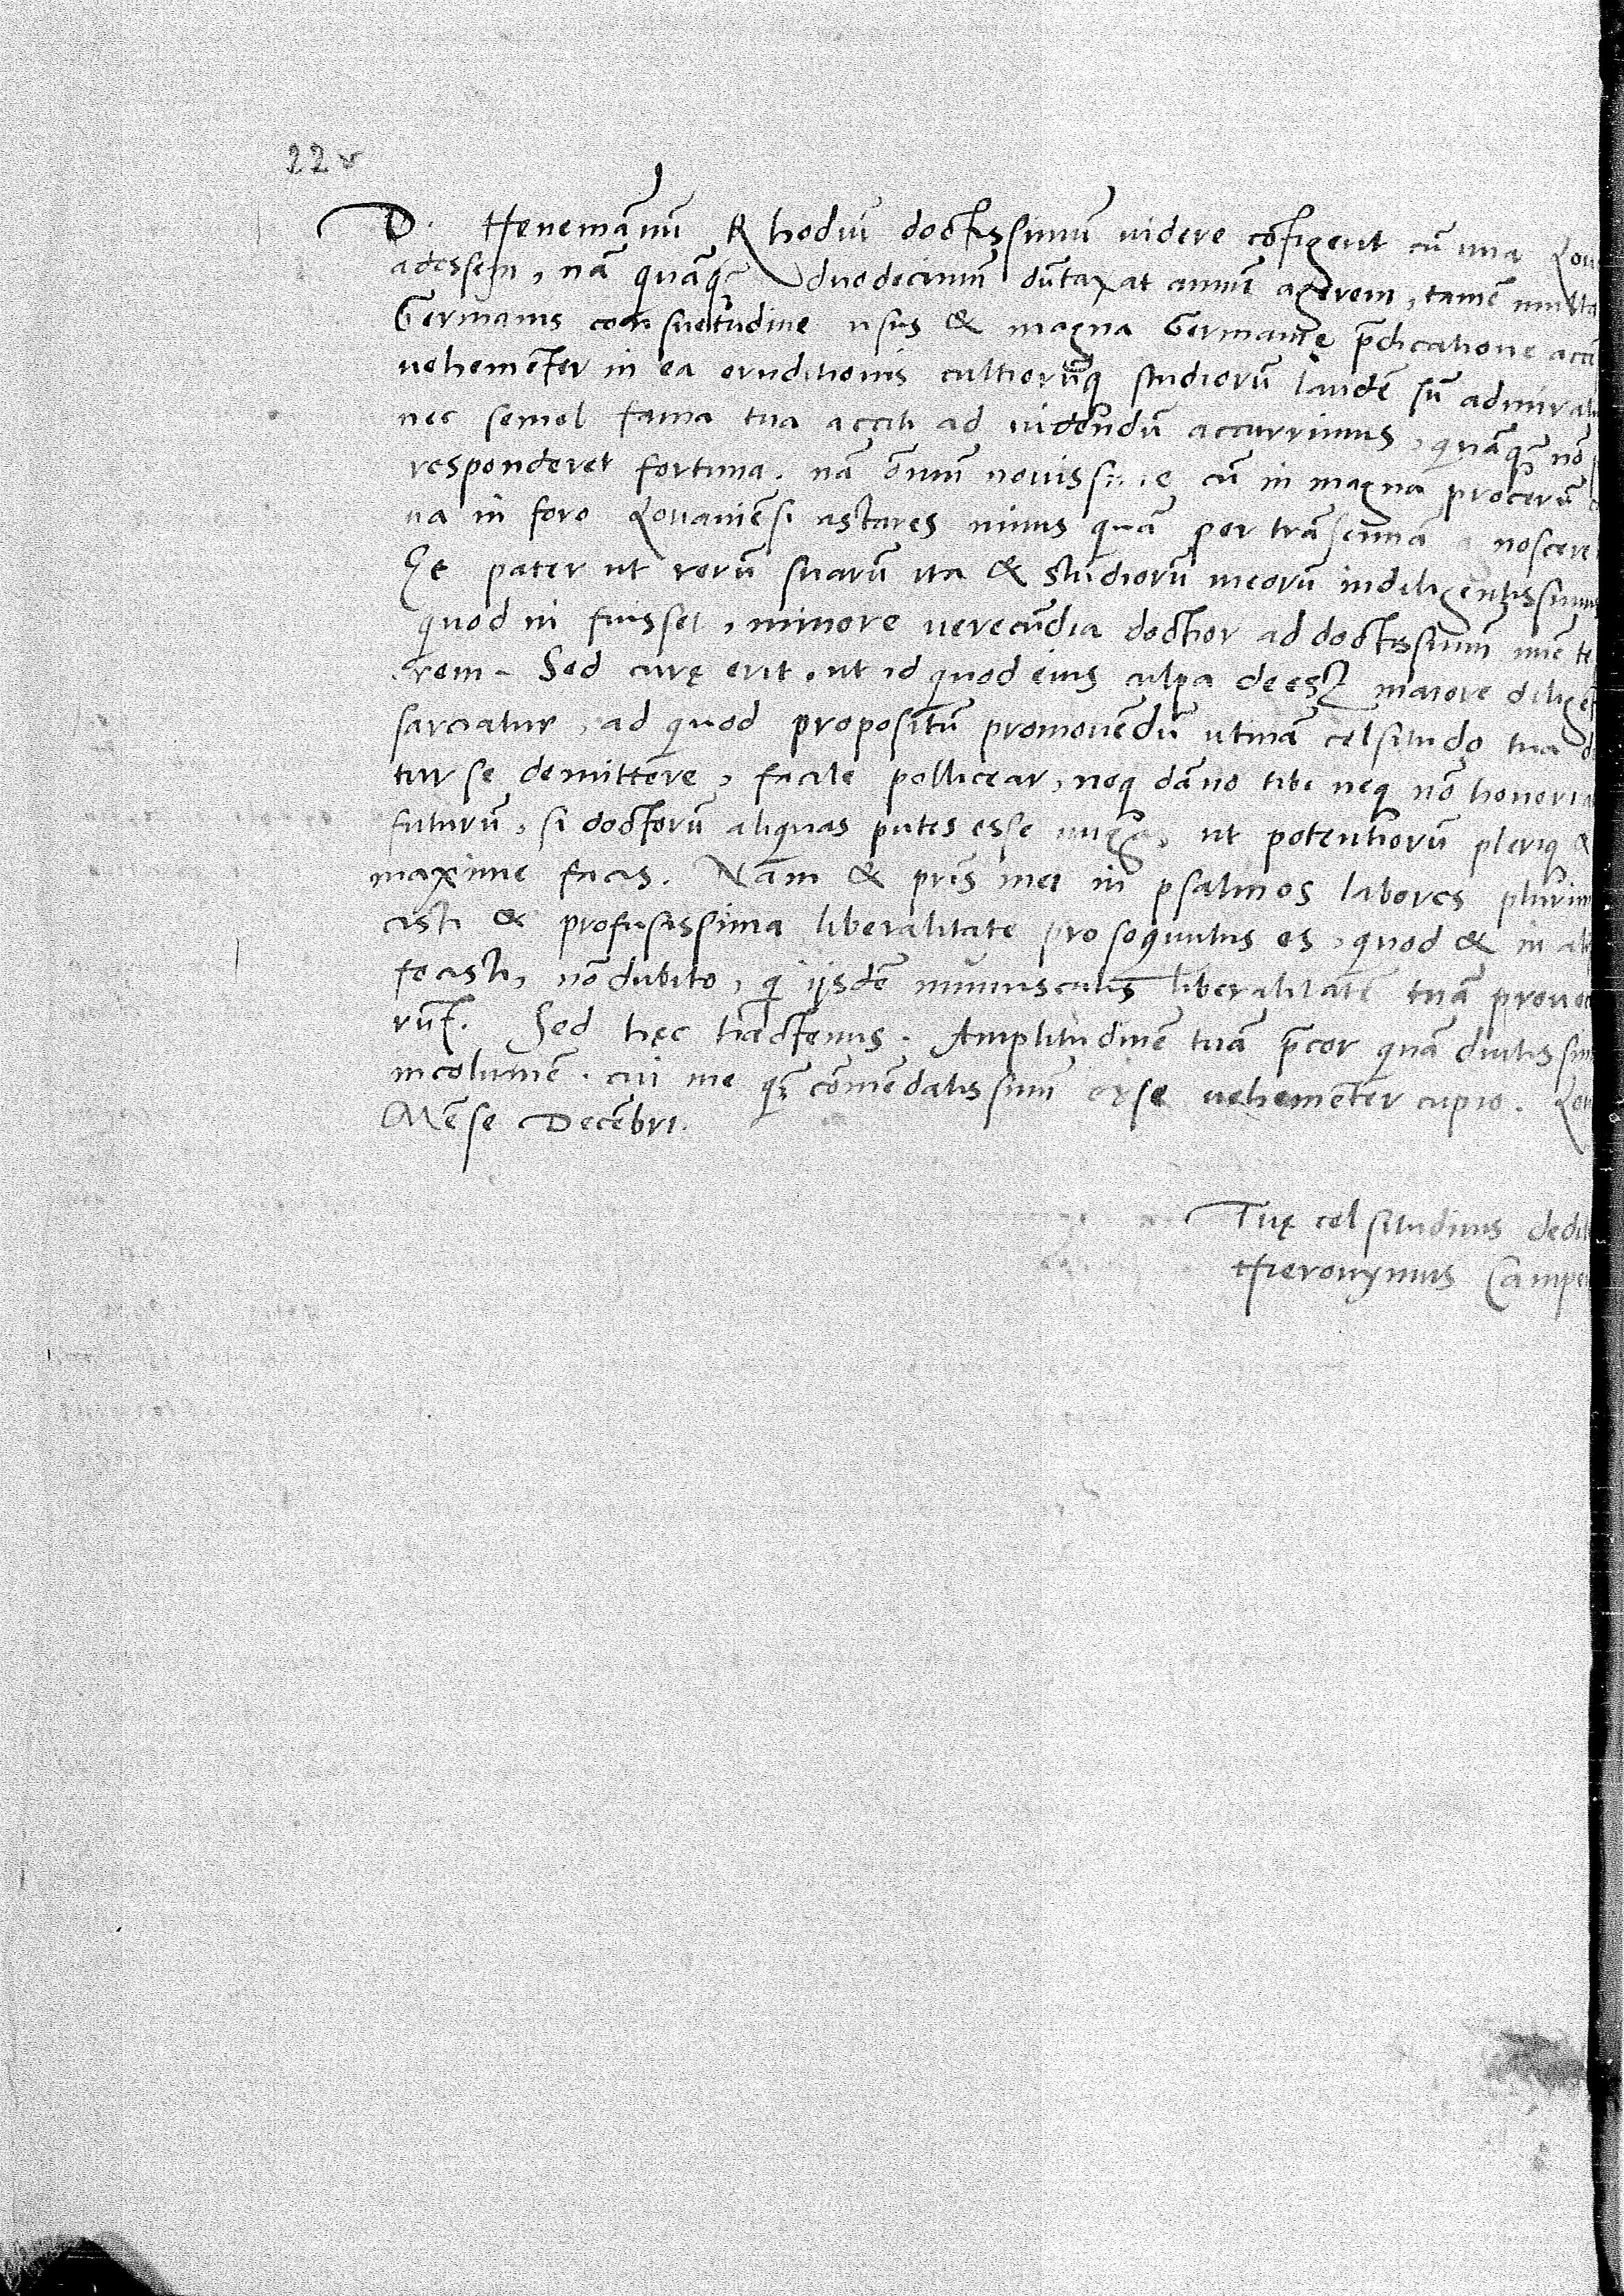 22v
D. Henemānū Rhodiū doctissimū uidere cōtigerit cū una Lou
adessem, nā quāq̄ duodecimū dūtaxat annū agerem, tamē multa
Germanis consuetudine usus & magna Germanię p̄dicatione acc
uehemēter in ea eruditionis cultiorūq studiorū laudē sū admirat
nec semel fama tua acciti ad uidendū accurrimus, quāq̄ nō
responderet fortuna. nā ōniū nouissime cū in magna procerū
ua in foro Louaniēsi astares minus quā per trāsennā noscere
Et pater ut rerū suarū ita & studiorū meorū indiligentissimus
quod ni fuisset, minore uerecūdia doctior ad doctissimū nūc te
rem. Sed curę erit, ut id quod eius culpa deest maiore diligēt
sarciatur, ad quod propositū promouēdū utinā celsitudo tua d
tur se demittere, facile pollicear, neq dāno tibi neq nō honori
futurū, si doctorū aliquas putes esse nugas, ut potentiorū pleriq &
maxime facis. Nam & pr̄is mei in psalmos labores plurim
casti & profusissima liberalitate prosequutus es, quod & in ali
fecisti, nō dubito, qi iisdē munusculis liberalitatē tuā prouoc
rūt. Sed hęc hactenus. Amplitudinē tuā p̄cor quā diutissim
incolumē. cui me q̄ cōmēdatissimū esse uehementer cupio. Lou
Mēse Decēbri.
Tuę celsitudinis dedit
Hieronymus Campe